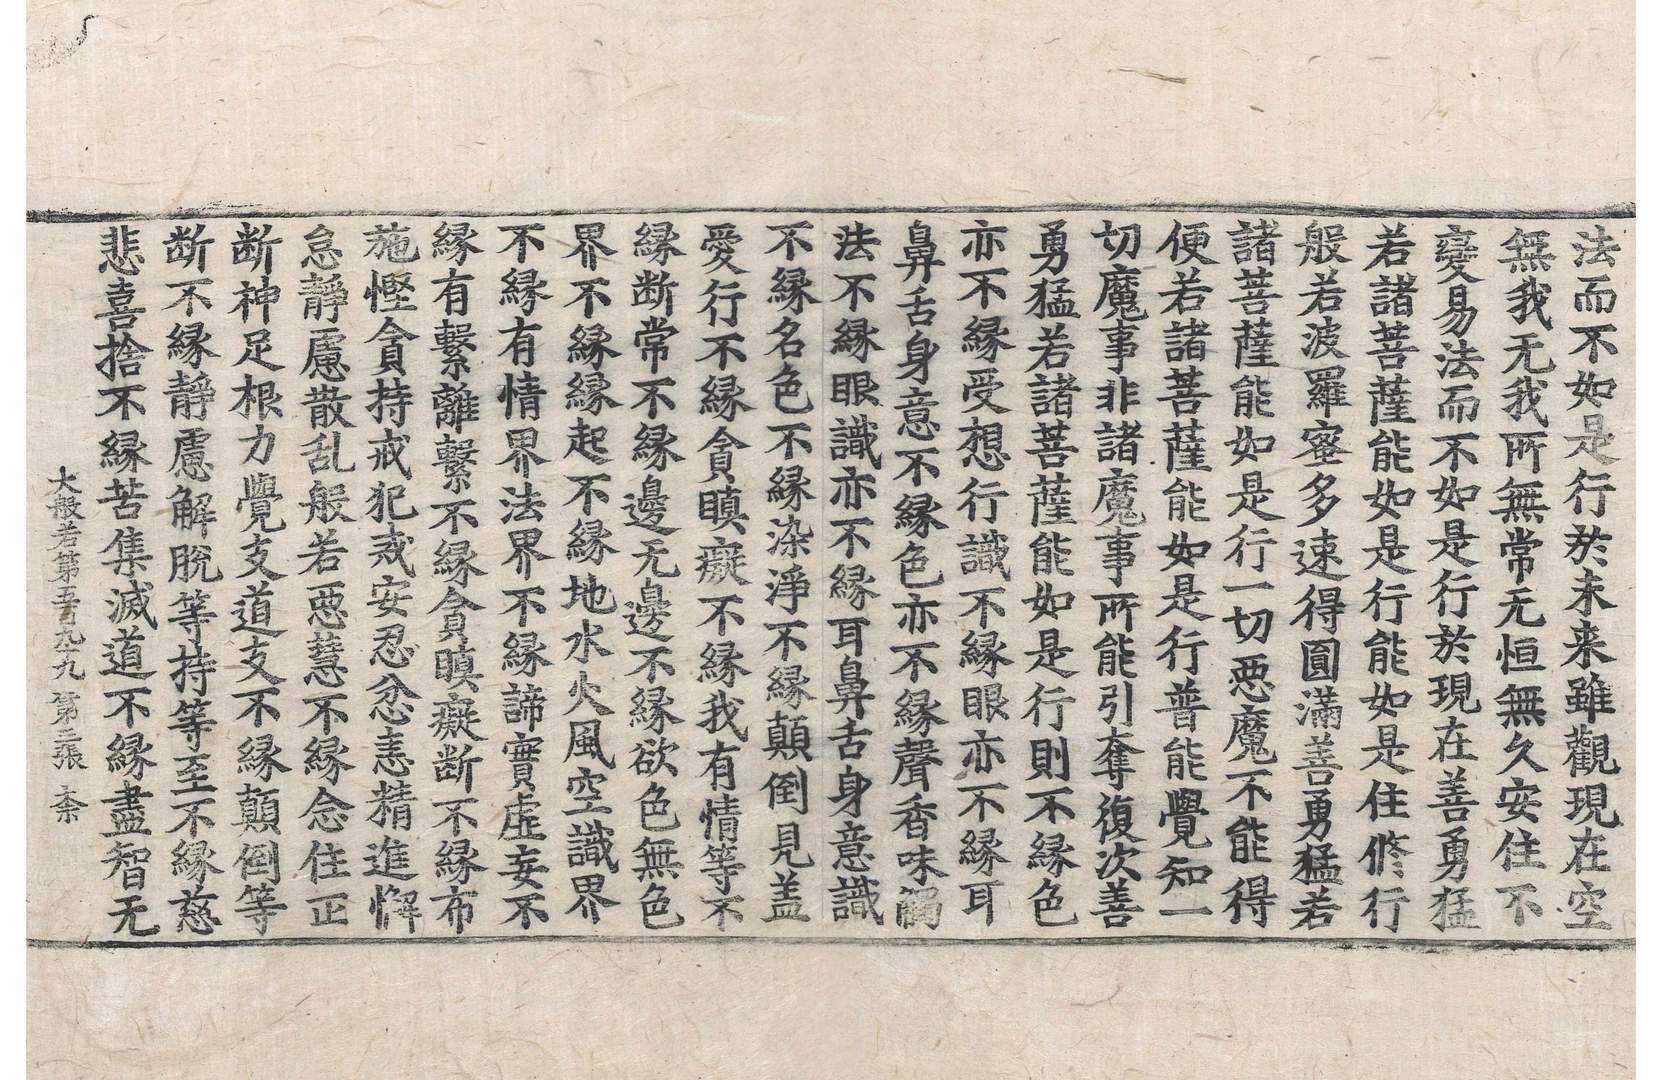 法而不如是行於未来雖觀現在空
無我无我所無常无恒無久安住不
變易法而不如是行於現在善勇猛
若諸菩薩能如是行能如是住修行
般若波羅蜜多速得圓滿善勇猛若
諸菩薩能如是行一切惡魔不能得
便若諸菩薩能如是行普能覺知一
切魔事非諸魔事所能引奪復次善
勇猛若諸菩薩能如是行則不緣色
亦不緣受想行識不緣眼亦不緣耳
鼻舌身意不緣色亦不緣聲香味觸
法不緣眼識亦不緣耳鼻舌身意識
不緣名色不緣染淨不緣顛倒見盖
愛行不緣貪瞋癡不緣我有情等不
緣断常不緣邊无邊不緣欲色無色
界不緣緣起不緣地水火風空識界
不緣有情界法界不緣諦實虛妄不
緣有繫離繫不緣貪瞋癡断不緣布
施慳貪持戒犯戒安忍忿恚精進懈
怠靜慮散乱般若惡慧不緣念住正
断神足根力覺支道支不緣顛倒等
断不緣靜慮解脫等持等至不緣慈
悲喜捨不緣苦集滅道不緣盡智无
大般若第五百九九 第三張 柰